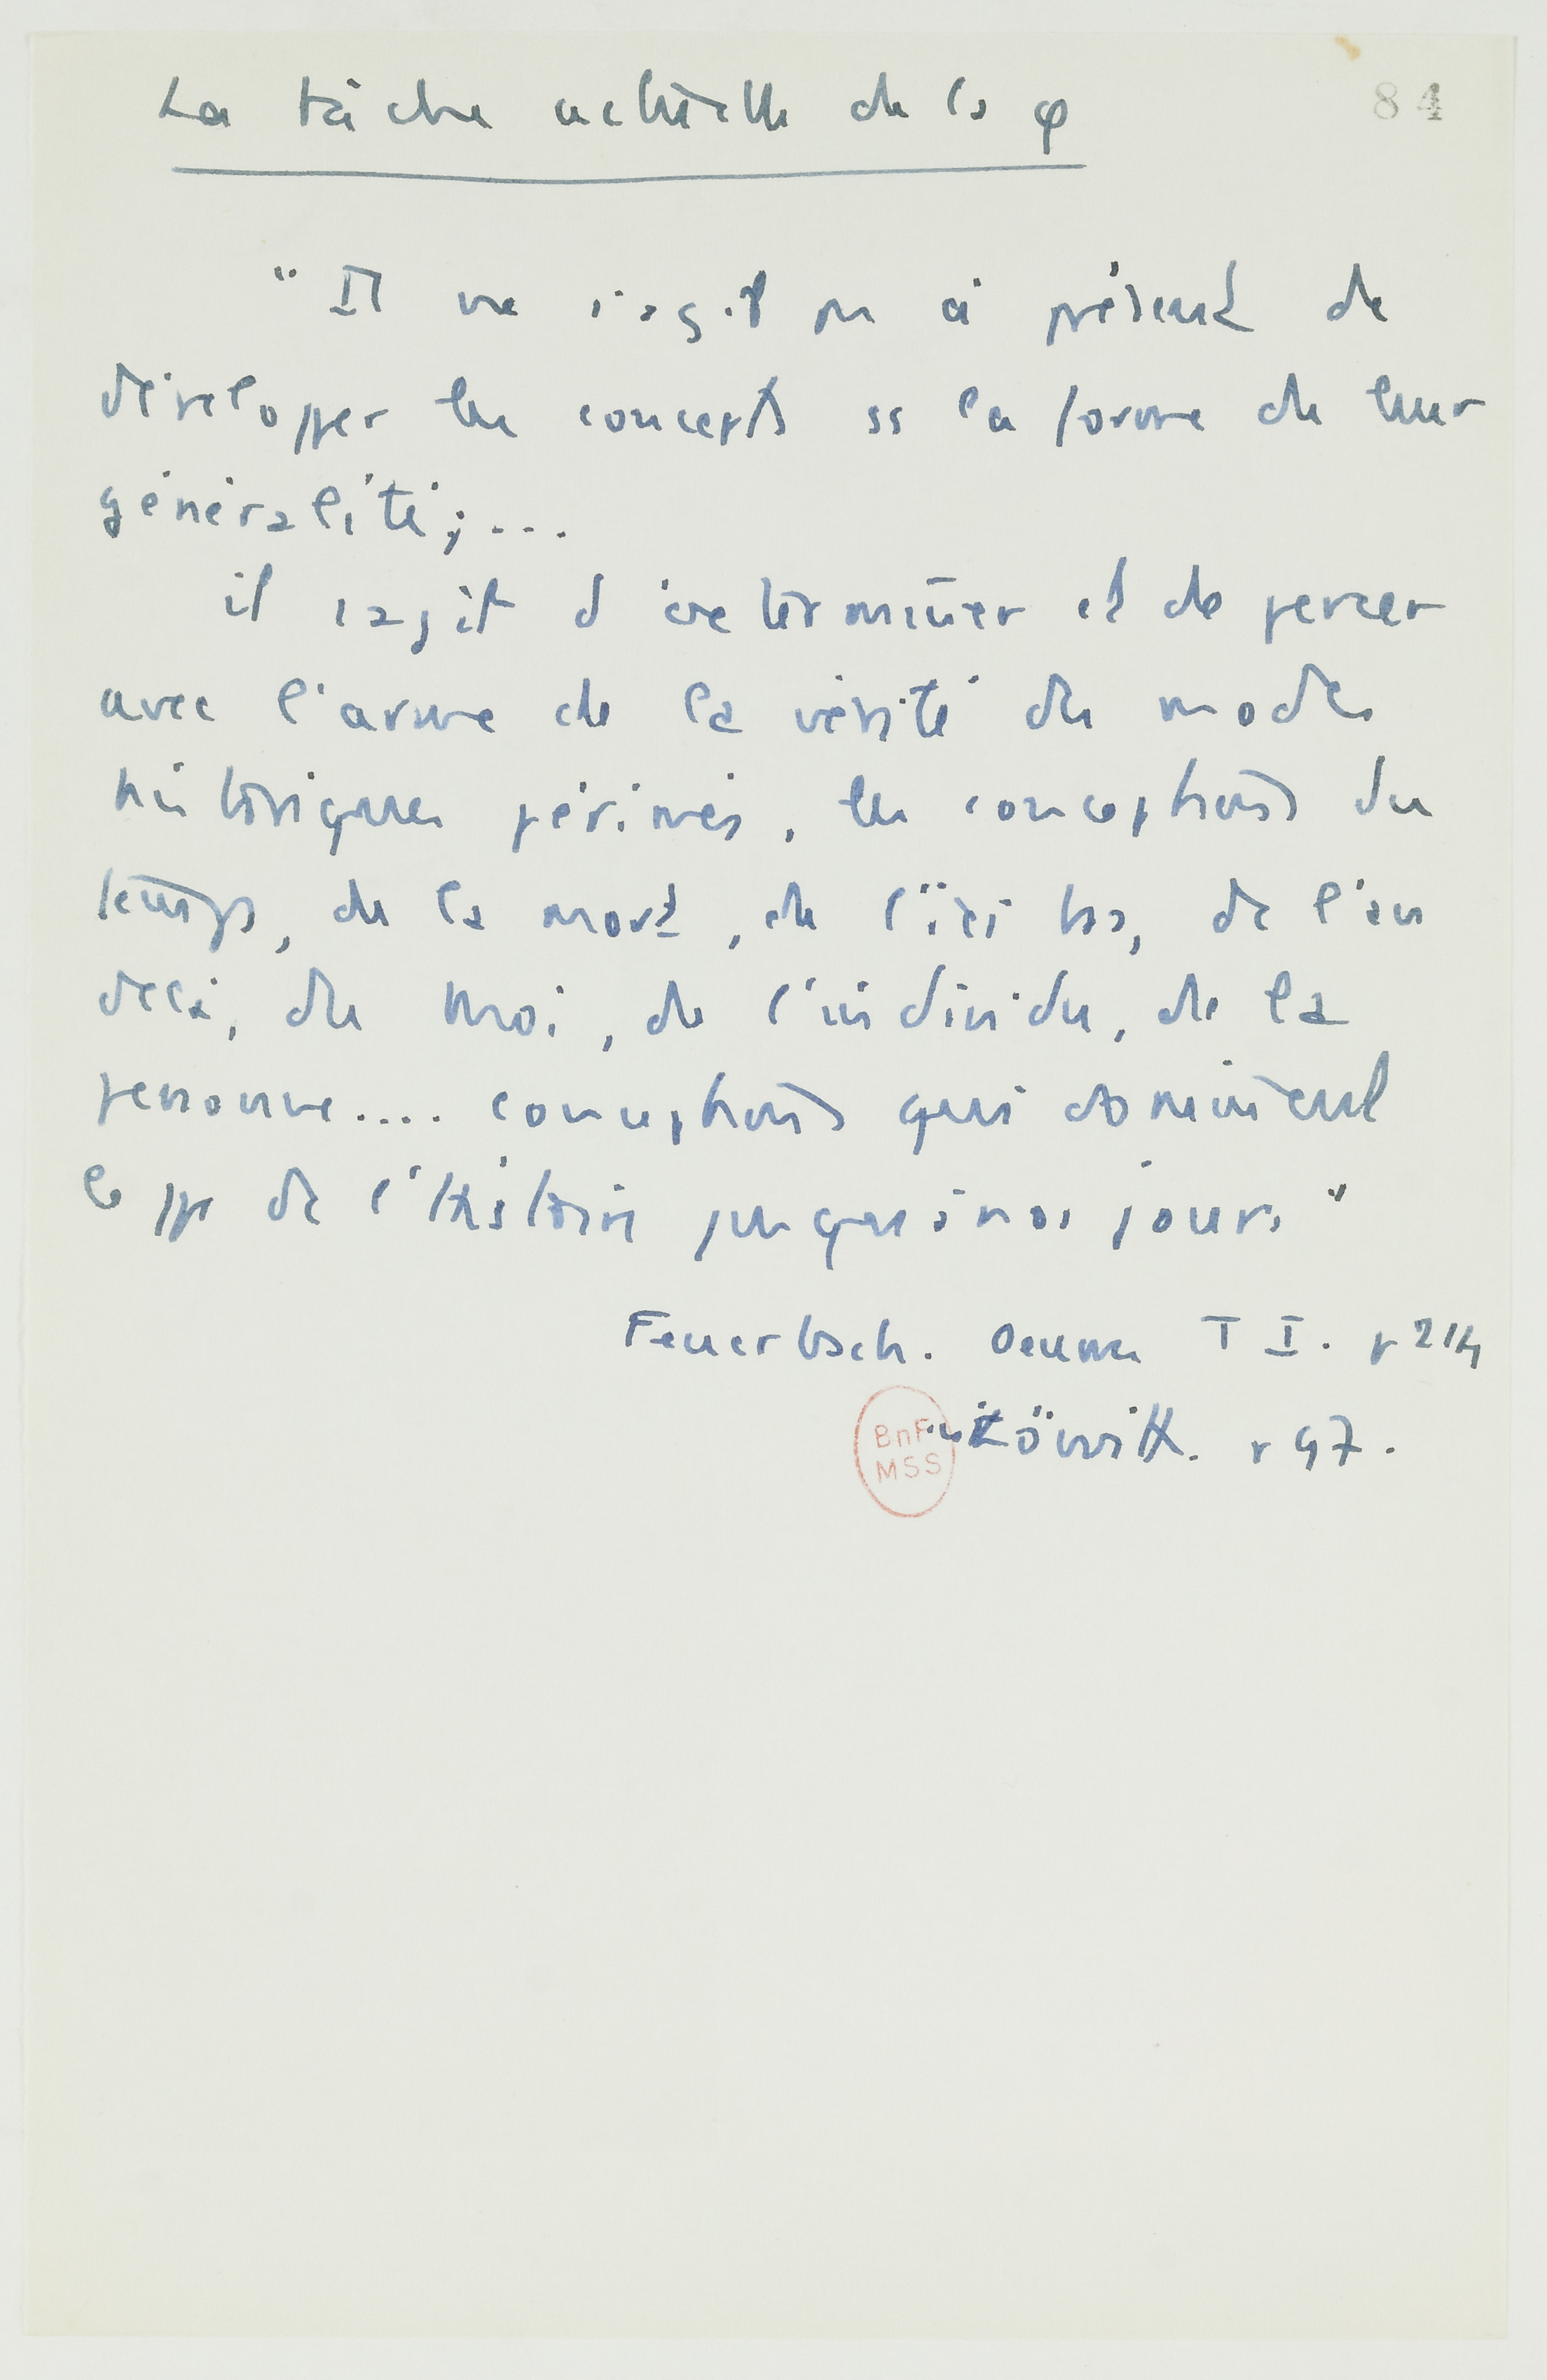 La tâche actuelle de la φ
84
"Il ne s'agit pas à présent de
développer les concepts ss la forme de leur
généralité; ...
il s'agit d'exterminer et de percer
avec l'arme de la vérité des modes
historiques périmés, les conceptions du
temps, de la mort, de l'ici bas, de l'au
delà, du moi, de l'individu, de la
personne.... conceptions qui dominent
le pp de l'histoire jusqu'à nos jours"
Feuerbach. Oeuvres T I. p 214
BnF
MSS
in Löwith. p 97.